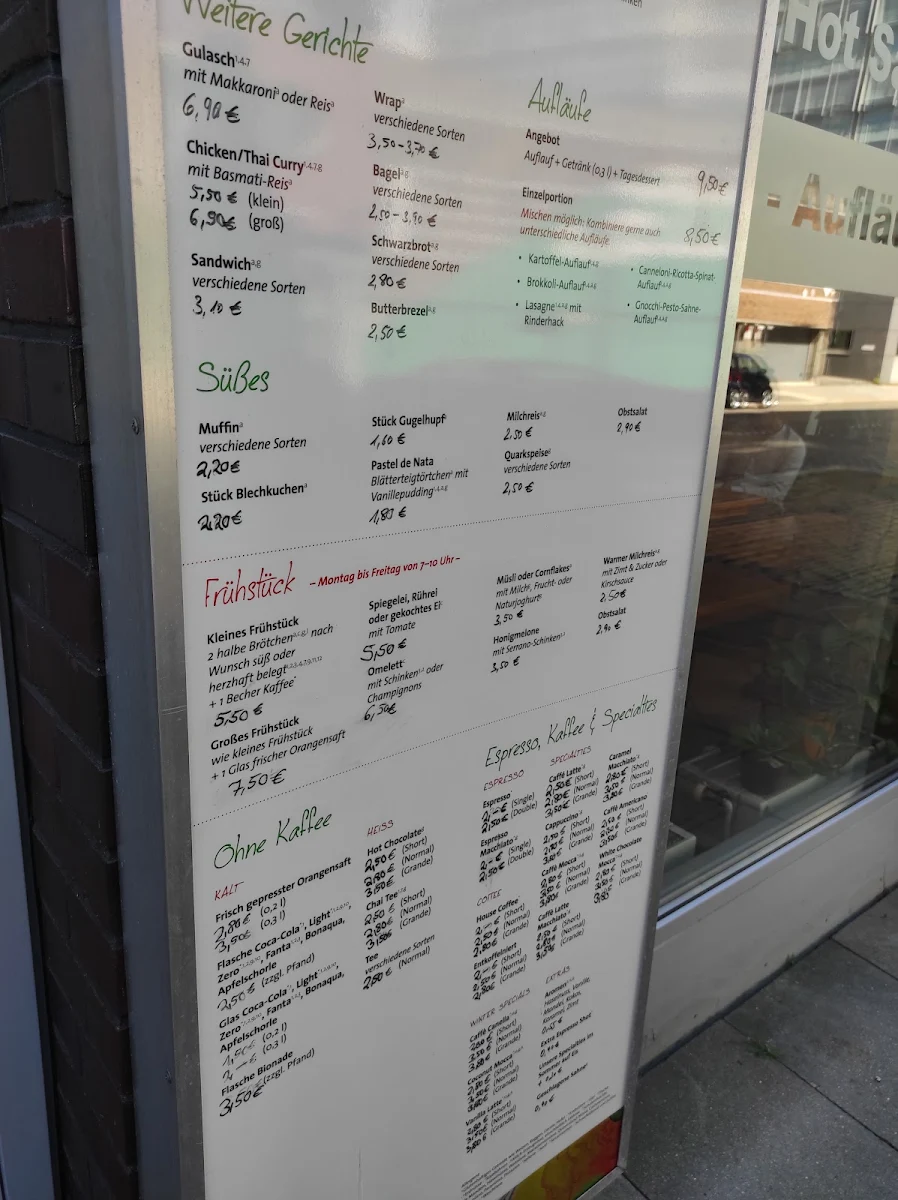 Weitere Gerichte
Gulasch
mit Makkaroni oder Reis
6,90 €
Chicken/Thai Curry
mit Basmati-Reis
5,50 € (klein)
6,90€ (groß)
Sandwich
verschiedene Sorten
3,10 €
Wrap
verschiedene Sorten
3,50-3,70 €
Bagel
verschiedene Sorten
2,50 - 3,90 €
Schwarzbrot
verschiedene Sorten
2,80 €
Butterbrezel
2,50 €
Aufläufe
Angebot
Auflauf + Getränk (0,3 l) + Tagesdessert
9,50 €
Einzelportion
Mischen möglich: Kombiniere gerne auch
unterschiedliche Aufläufe.
8,50€
• Kartoffel-Auflauf
• Brokkoli-Auflauf
• Lasagne mit
Rinderhack
• Canneloni-Ricotta-Spinat-
Auflauf
• Gnocchi-Pesto-Sahne-
Auflauf
Süßes
Muffin
verschiedene Sorten
2,20€
Stück Blechkuchen
2,20€
Stück Gugelhupf
1,60 €
Pastel de Nata
Blätterteigtörtchen mit
Vanillepudding
1,80 €
Milchreis
2,50 €
Quarkspeise
verschiedene Sorten
2,50 €
Obstsalat
2,90 €
Frühstück – Montag bis Freitag von 7–10 Uhr –
Kleines Frühstück
2 halbe Brötchen nach
Wunsch süß oder
herzhaft belegt
+ 1 Becher Kaffee
5,50 €
Großes Frühstück
wie kleines Frühstück
+ 1 Glas frischer Orangensaft
7,50 €
Spiegelei, Rührei
oder gekochtes Ei
mit Tomate
5,50 €
Omelett
mit Schinken oder
Champignons
6,50€
Müsli oder Cornflakes
mit Milch, Frucht- oder
Naturjoghurt
3,50 €
Honigmelone
mit Serrano-Schinken
3,50 €
Warmer Milchreis
mit Zimt & Zucker oder
Kirschsauce
2,50€
Obstsalat
2,90 €
Ohne Kaffee
KALT
Frisch gepresster Orangensaft
2,80€ (0,2 l)
3,50€ (0,3 l)
Flasche Coca-Cola, Light,
Zero, Fanta, Bonaqua,
Apfelschorle
2,50€ (zzgl. Pfand)
Glas Coca-Cola, Light,
Zero, Fanta, Bonaqua,
Apfelschorle
(0,2 l)
(0,3 l)
Flasche Bionade
3,50€ (zzgl. Pfand)
HEISS
Hot Chocolate
2,50€ (Short)
2,80€ (Normal)
3,50€ (Grande)
Chai Tee
2,50 € (Short)
2,80€ (Normal)
3,50€ (Grande)
Tee
verschiedene Sorten
2,60€ (Normal)
Espresso, Kaffee & Specialties
ESPRESSO
Espresso
2,–€ (Single)
2,50€ (Double)
Espresso
Macchiato
2,–€ (Single)
2,50€ (Double)
COFFEE
House Coffee
(Short)
(Normal)
(Grande)
Entkoffeiniert
(Short)
(Normal)
(Grande)
WINTER SPECIALS
Caffè Canella
(Short)
(Normal)
(Grande)
Coconut Mocca
(Short)
(Normal)
(Grande)
Vanilla Latte
(Short)
(Normal)
(Grande)
SPECIALTIES
Caffè Latte
(Short)
(Normal)
(Grande)
Cappuccino
(Short)
(Normal)
(Grande)
Caffè Mocca
(Short)
(Normal)
(Grande)
Caffè Latte
Macchiato
(Short)
(Normal)
(Grande)
EXTRAS
Aromen
Haselnuss, Vanille,
Mandel, Kokos,
Karamel, Zimt
Extra Espresso Shot
Unsere Specialties im
Sommer auf Eis
Geschlagene Sahne
0,40 €
Caramel
Macchiato
(Short)
(Normal)
(Grande)
Caffè Americano
(Short)
(Normal)
(Grande)
White Chocolate
Mocca
(Short)
(Normal)
(Grande)
Hot S
- Auflä